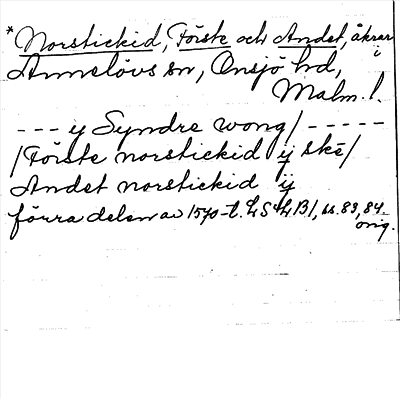 * Norstickid, Förste och Andet, åkrar i
Annelövs sn, Onsjö hd,
Malm. l.
- - - y Syndre wong / - - - - -
/ Förste norstickid ij skē /
Andet norstickid ij
förra delen av 1570-t. LSthB1, ss. 83, 84.
orig.